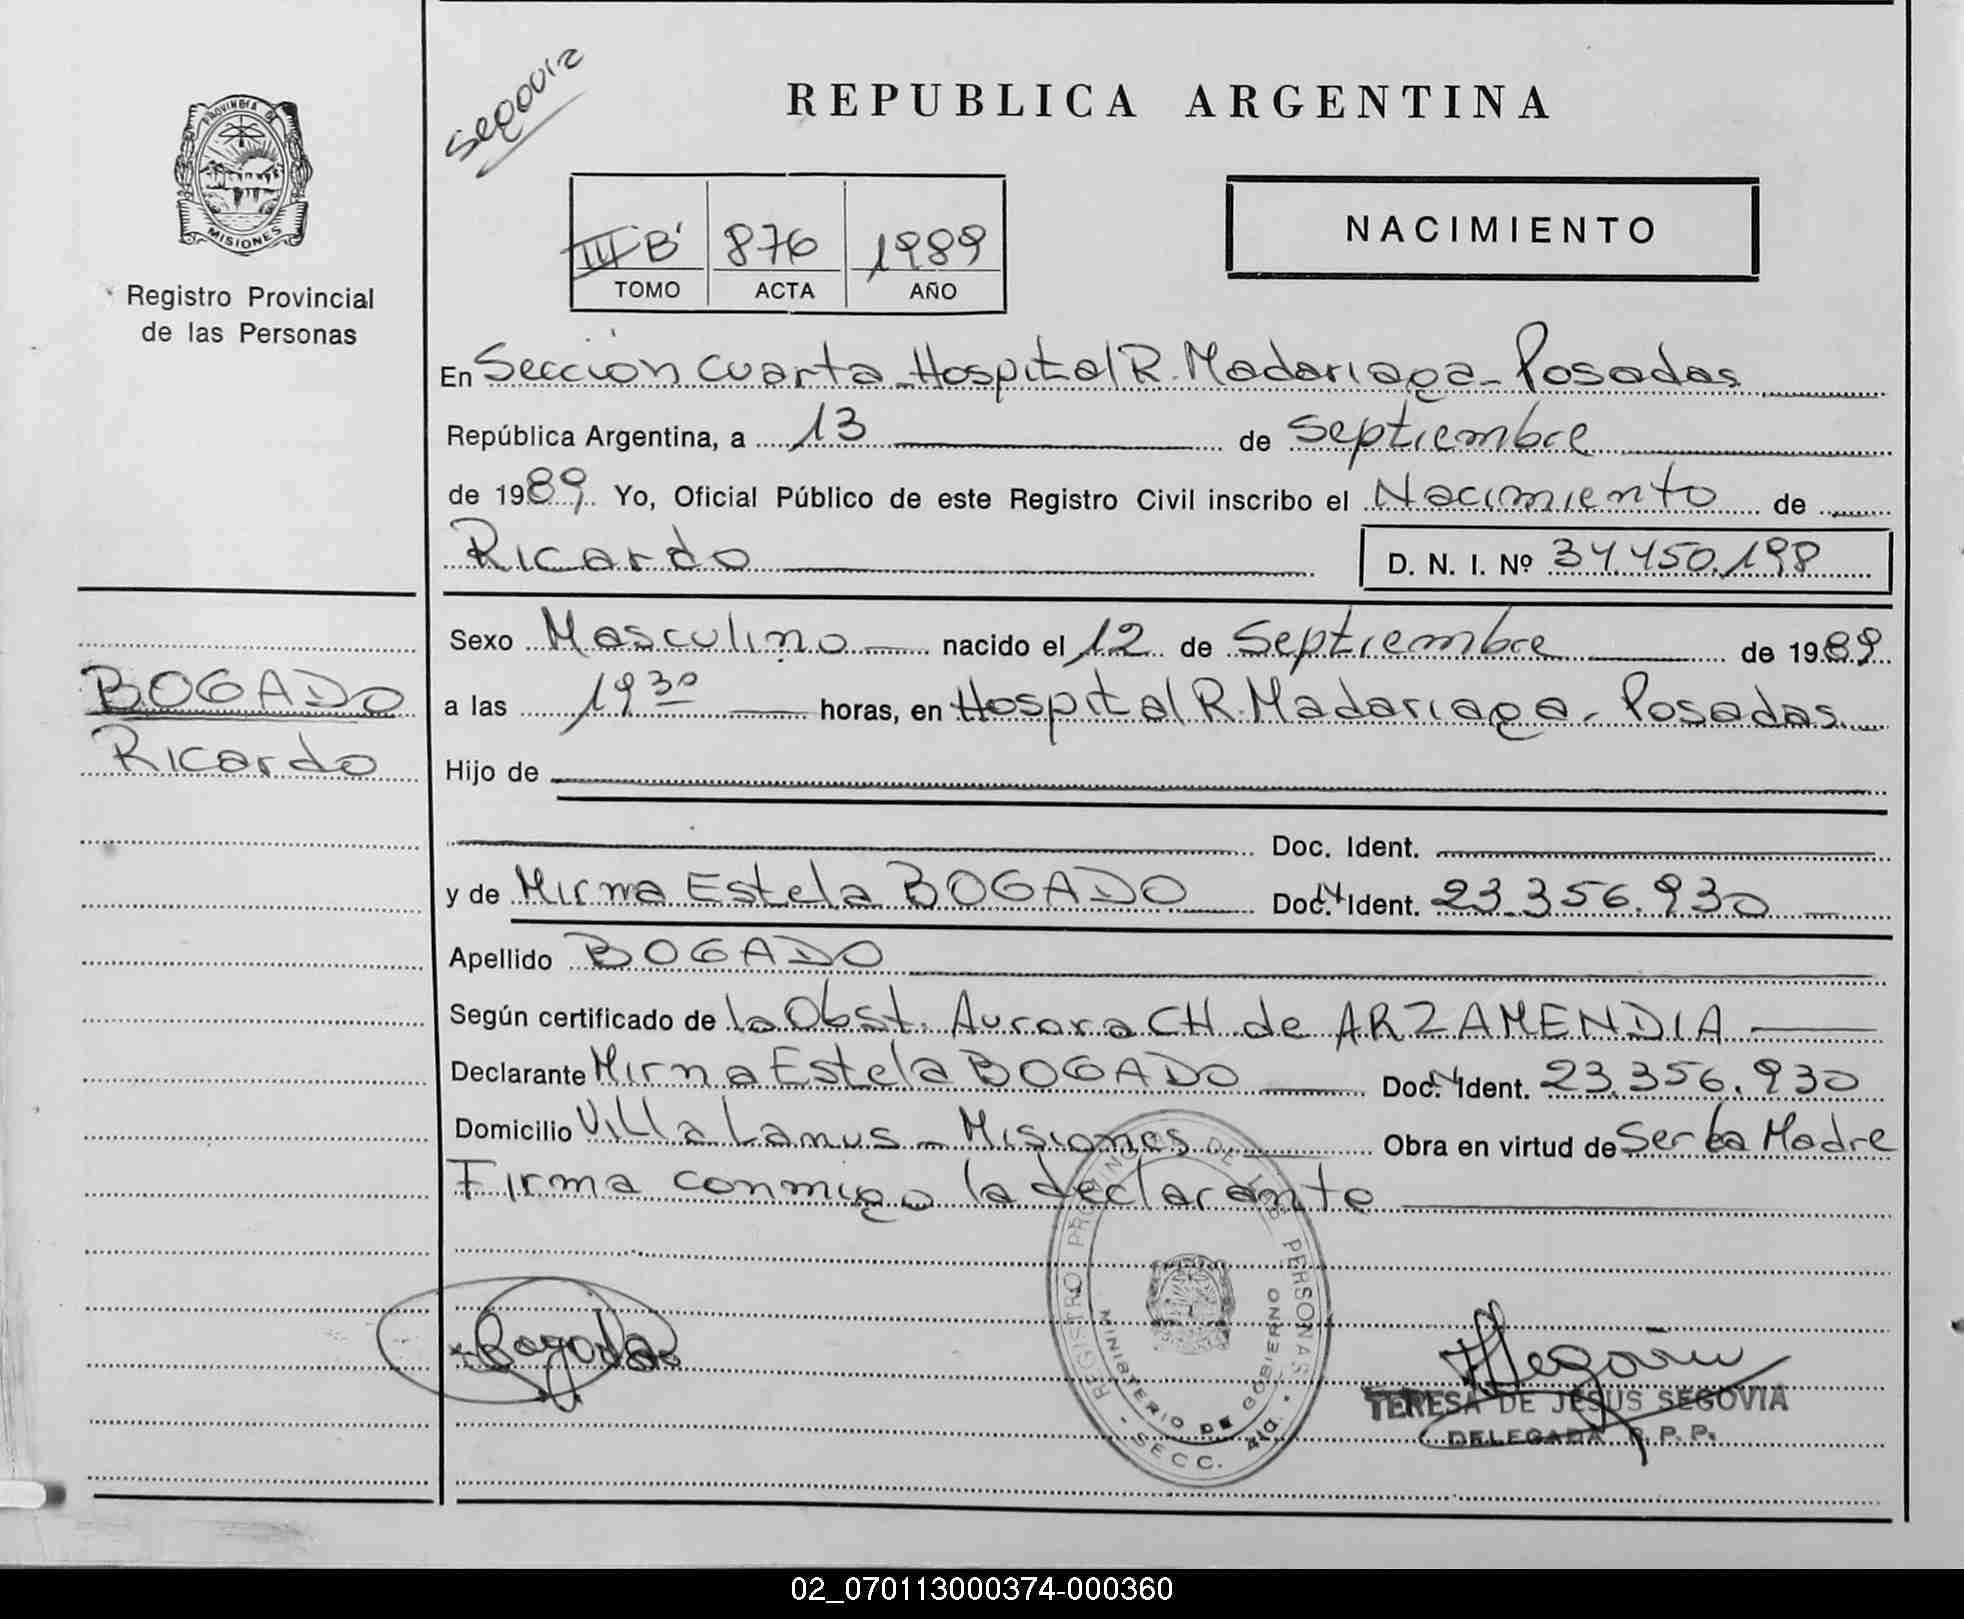 Segovia
REPUBLICA ARGENTINA
PROVINCIA DE
MISIONES
Registro Provincial
de las Personas
III "B" 876 1989
TOMO ACTA AÑO
NACIMIENTO
En Sección Cuarta-Hospital R. Madariaga-Posadas
República Argentina, a 13 de Septiembre
de 1989 Yo, Oficial Público de este Registro Civil inscribo el Nacimiento de
Ricardo
D. N. I. Nº 34.450.198
BOGADO
Ricardo
Sexo Masculino nacido el 12 de Septiembre de 1989
a las 19 30 horas, en Hospital R. Madariaga - Posadas
Hijo de
Doc. Ident.
y de Mirna Estela BOGADO Doc. N Ident. 23.356.930
Apellido BOGADO
Según certificado de la Obst. Aurora CH de ARZAMENDIA
Declarante Mirna Estela BOGADO Doc. N Ident. 23.356.930
Domicilio Villa Lanus - Misiones Obra en virtud de Ser la Madre
Firma conmigo la declarante
REGISTRO PROVINCIAL DE LAS PERSONAS
MINISTERIO DE GOBIERNO
- SECC. 4ta. -
Bogado
Segovia
TERESA DE JESUS SEGOVIA
DELEGADA R. P. P.
02_070113000374-000360